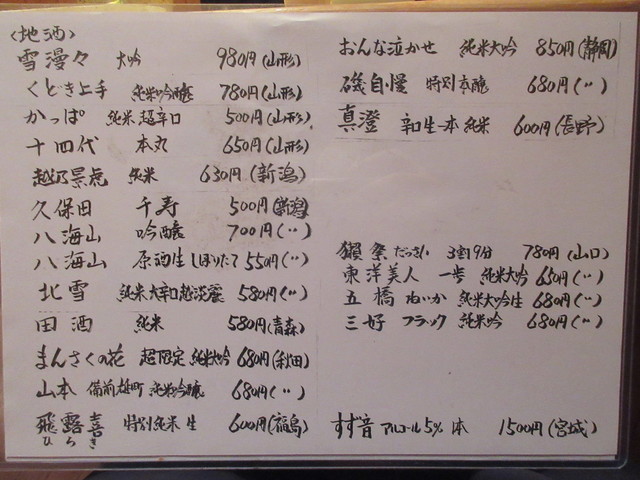 〈地酒〉
雪漫々 大吟 980円(山形)
くどき上手 純米吟醸 780円(山形)
かっぱ 純米超辛口 500円(山形)
十四代 本丸 650円(山形)
越乃景虎 純米 630円(新潟)
久保田 千寿 500円(新潟)
八海山 吟醸 700円(〃)
八海山 原酒生しぼりたて 550円(〃)
北雪 純米大辛口越淡麗 580円(〃)
田酒 純米 580円(青森)
まんさくの花 超限定純米大吟 680円(秋田)
山本 備前雄町 純米吟醸 680円(〃)
飛露喜 特別純米 生 600円(福島)
ひろき
おんな泣かせ 純米大吟 850円(静岡)
磯自慢 特別本醸 680円(〃)
真澄 辛口生一本 純米 600円(長野)
獺祭 だっさい 3割9分 780円(山口)
東洋美人 一歩 純米大吟 650円(〃)
五橋 ねいか 純米大吟生 680円(〃)
三好 ブラック 純米吟 680円(〃)
すず音 アルコール5% 1本 1500円(宮城)